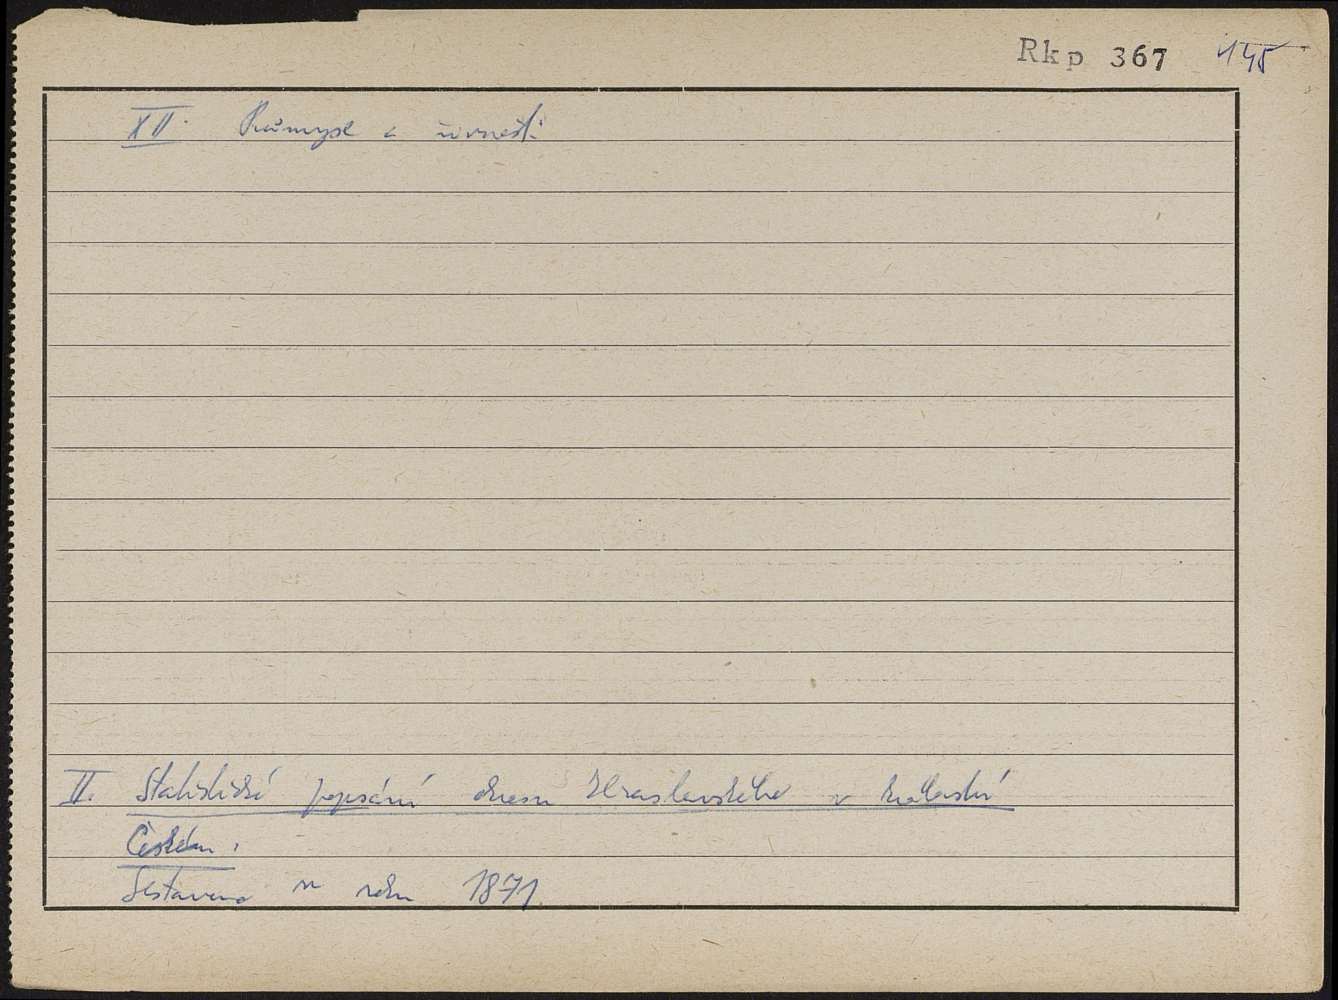 Rkp 367 145
XII. Průmysl a živnosti
II. Statistické popsání okresu Zbraslavského v království
Českém.
Sestaveno v roku 1871